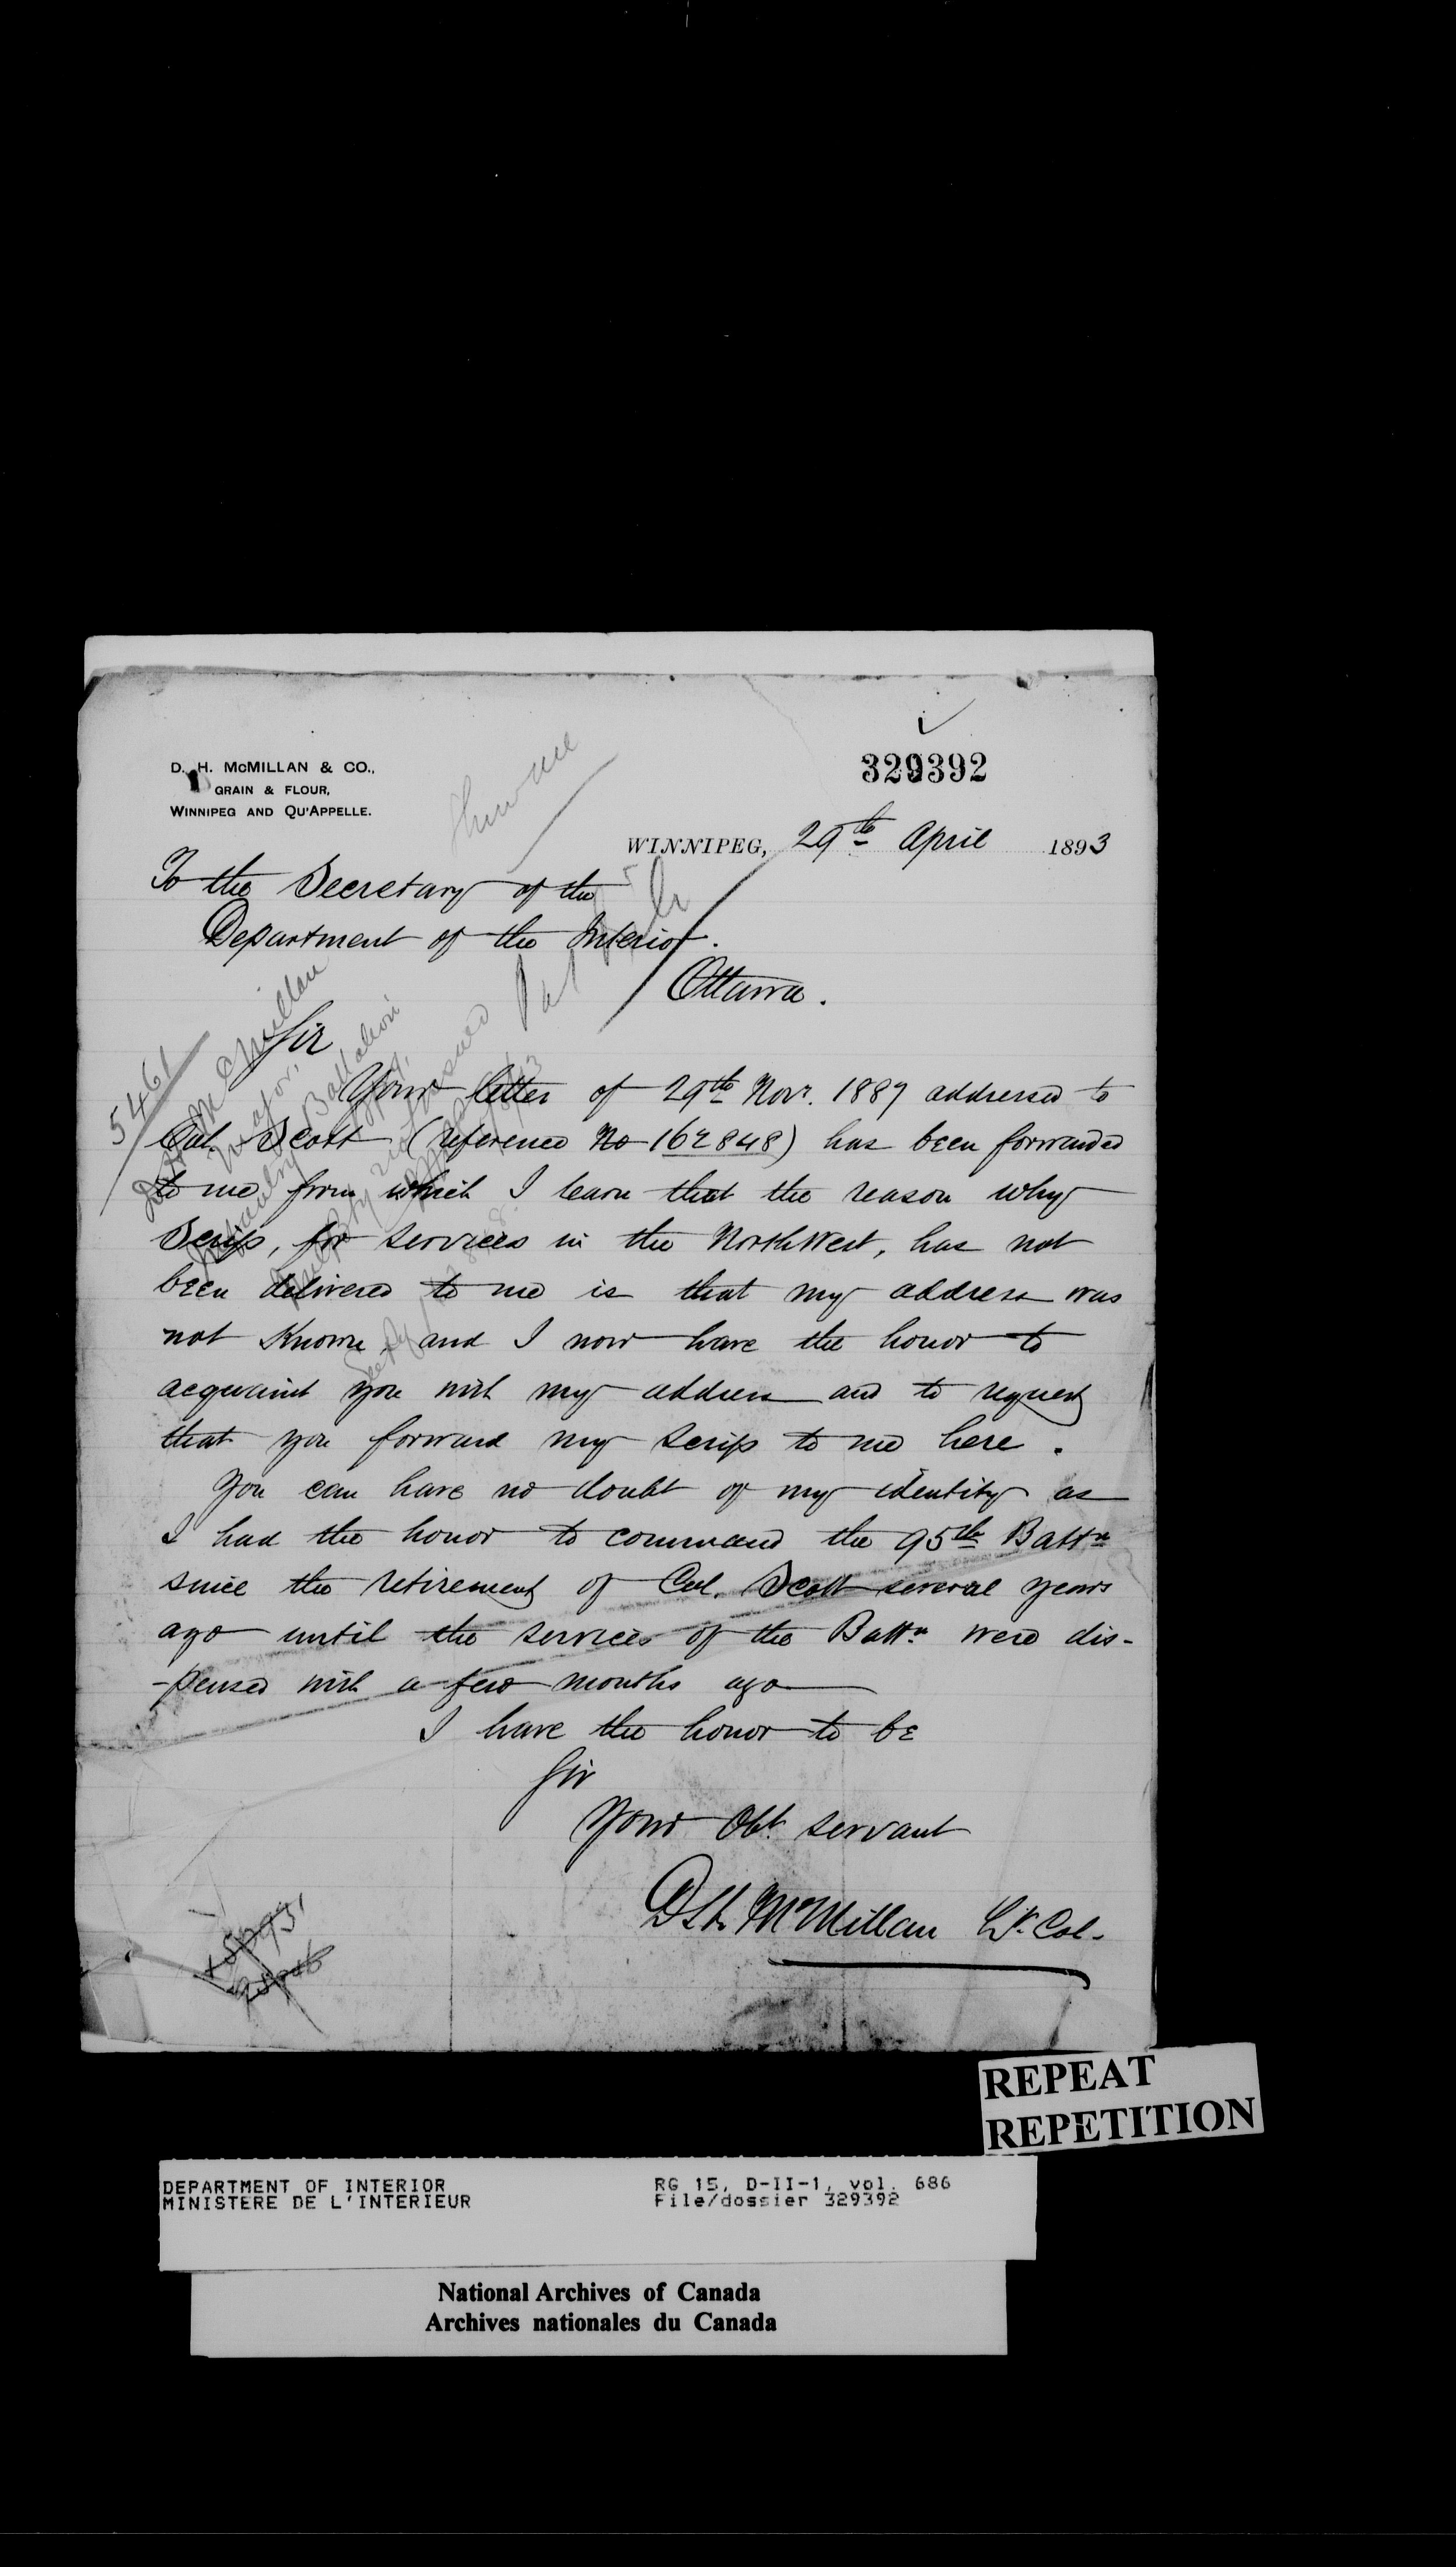 329392
D. H. McMILLAN & CO.,
GRAIN & FLOUR,
WINNIPEG AND QU'APPELLE.
WINNIPEG, 29th April 1893
To the Secretary of the
Department of the Interior.
Ottawa.
Sir
Your letter of 29th Novr. 1887 addressed to
Col. Scott (reference No 162848) has been forwarded
to me from which I learn that the reason why
Scrip, for services in the NorthWest, has not
been delivered to me is that my address was
not Known, and I now have the honor to
acquaint you with my address and to request
that you forward my scrip to me here.
You can have no doubt of my identity as
I had the honor to command the 95th Battn
since the retirement of Col. Scott several years
ago until the services of the Battn were dis-
-pensed with a few months ago
I have the honor to be
Sir
Your Obt. servant
D. H. McMillan Lt. Col.
5461
McMillan
Major,
Battalion
REPEAT
REPETITION
DEPARTMENT OF INTERIOR
MINISTERE DE L'INTERIEUR
RG 15, D-II-1, vol. 686
File/dossier 329392
National Archives of Canada
Archives nationales du Canada